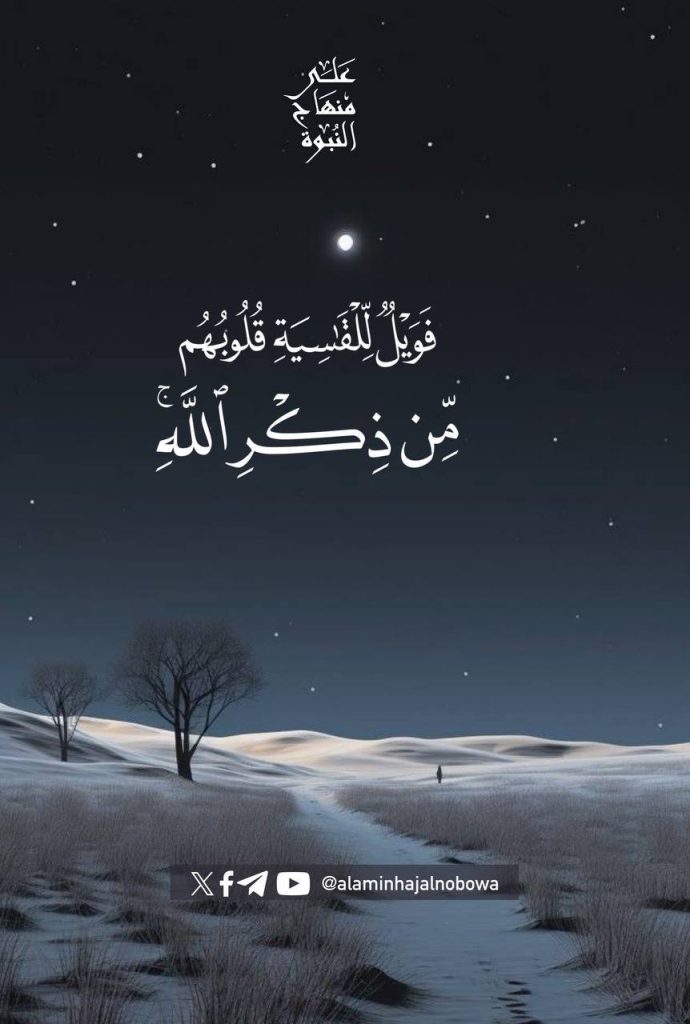 على
منهاج
النبوة
فَوَيۡلٞ لِّلۡقَٰسِيَةِ قُلُوبُهُم
مِّن ذِكۡرِ ٱللَّهِۚ
@alaminhajalnobowa